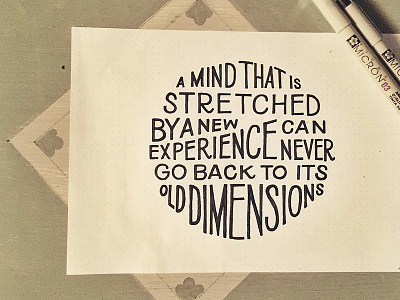 A MIND THAT IS
STRETCHED
BY A NEW CAN
EXPERIENCE NEVER
GO BACK TO ITS
OLD DIMENSIONS
MICRON 03
MICRON